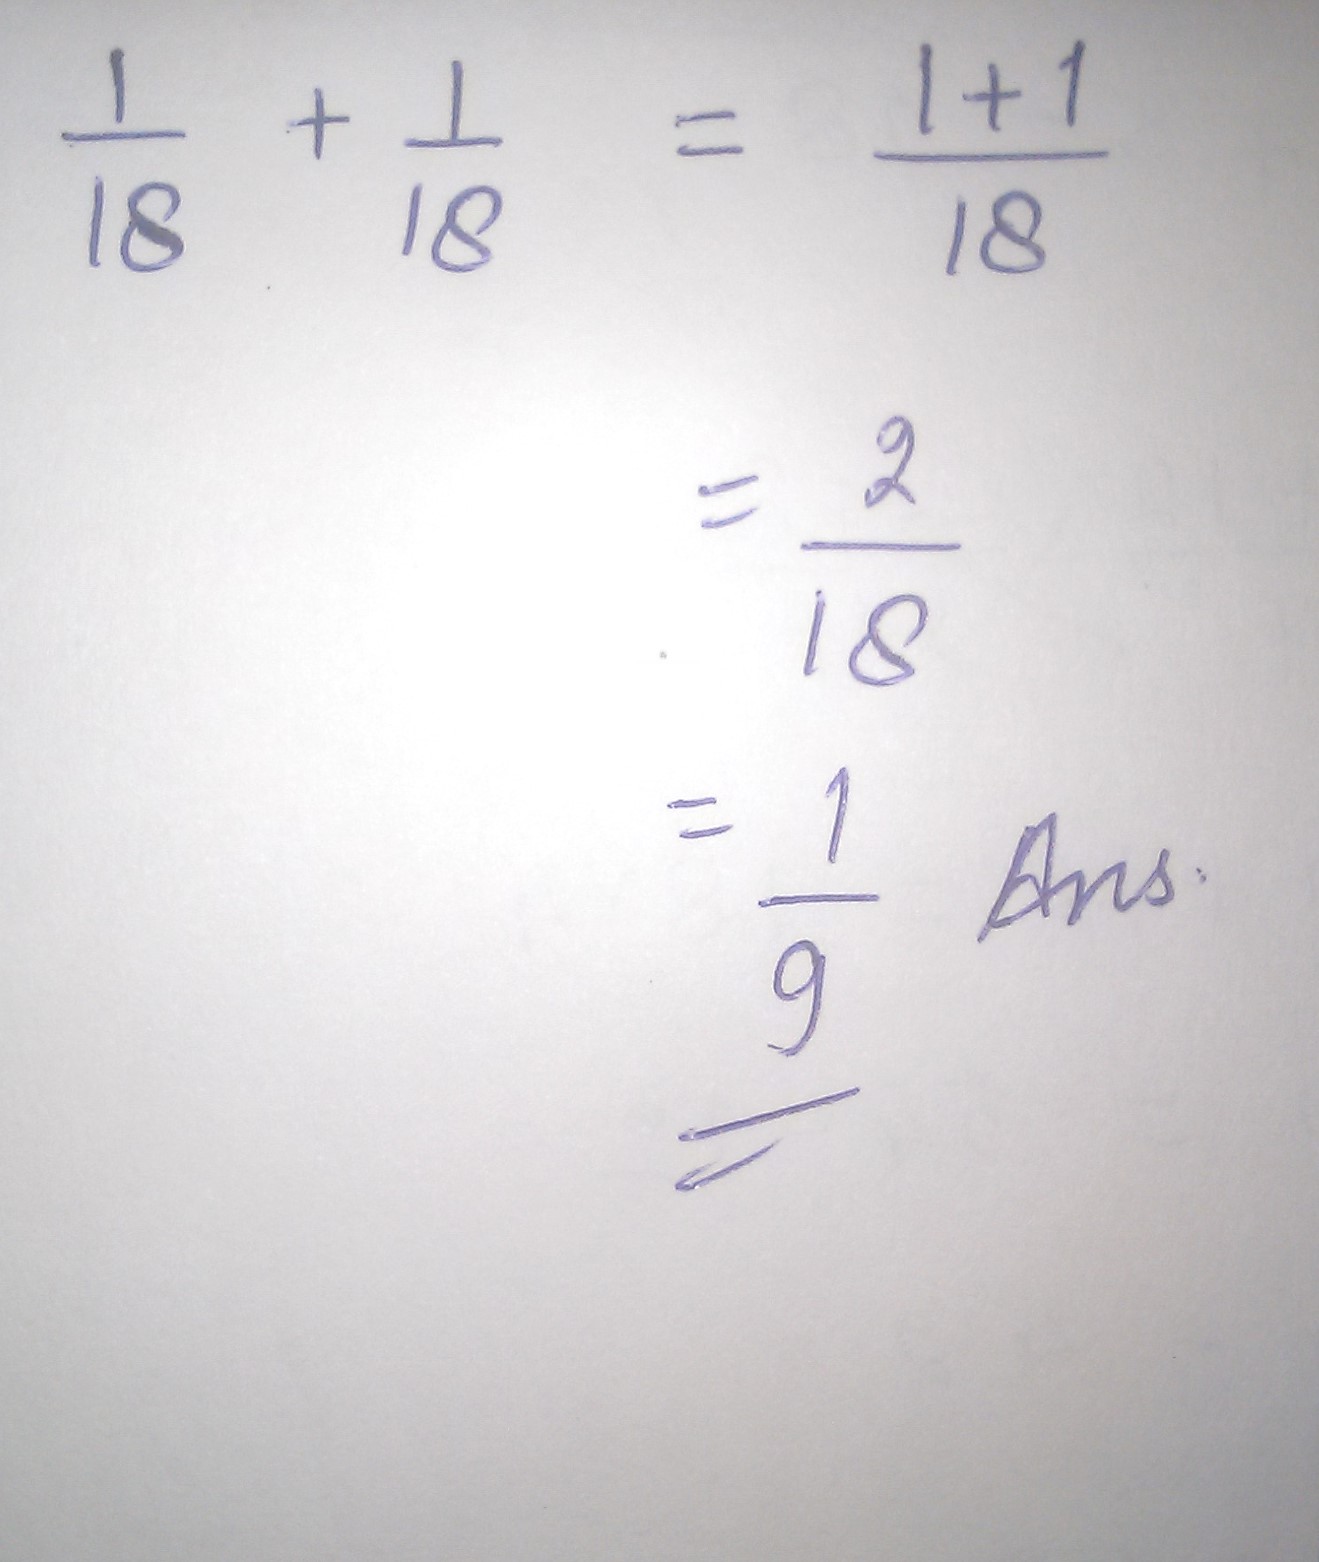 1/18 + 1/18 = 1+1/18
= 2/18
= 1/9 Ans.